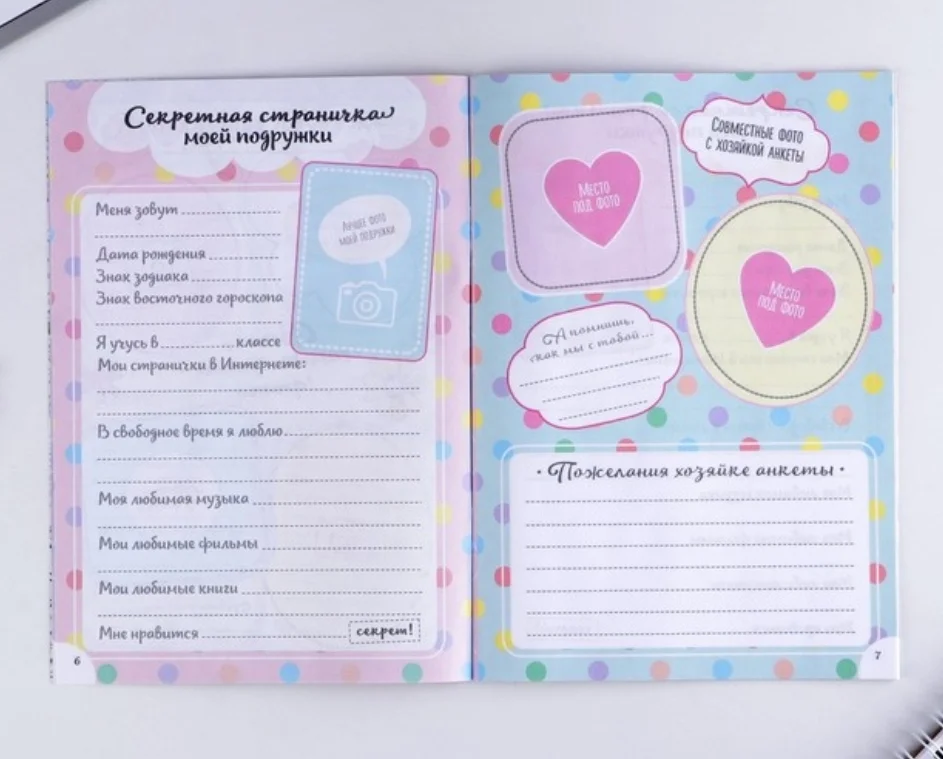 Секретная страничка
моей подружки
Меня зовут
Лучшее фото
моей подружки
Дата рождения
Знак зодиака
Знак восточного гороскопа
Я учусь в классе
Мои странички в Интернете:
В свободное время я люблю
Моя любимая музыка
Мои любимые фильмы
Мои любимые книги
Мне нравится секрет!
6
Место
под фото
Совместные фото
с хозяйкой анкеты
Место
под фото
А помнишь,
как мы с тобой...
• Пожелания хозяйке анкеты •
7